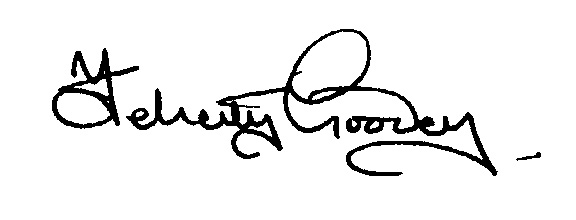 Felicity Goodey